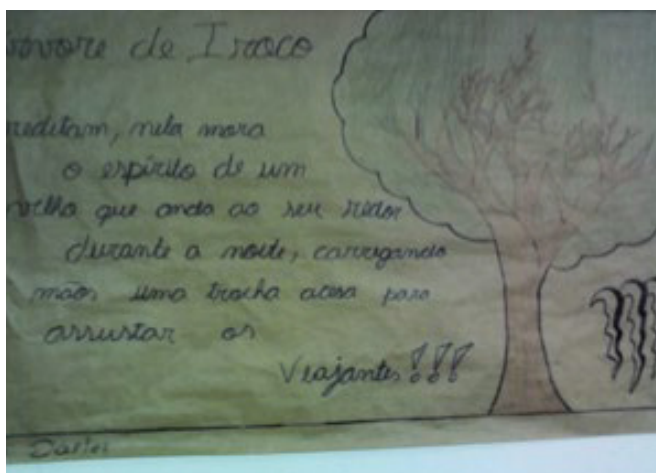 árvore de Iroco
reditam, nela mora
o espírito de um
velho que anda ao seu redor
durante a noite, carregando
mãos uma trocha acesa para
assustar os
Viajantes!!!